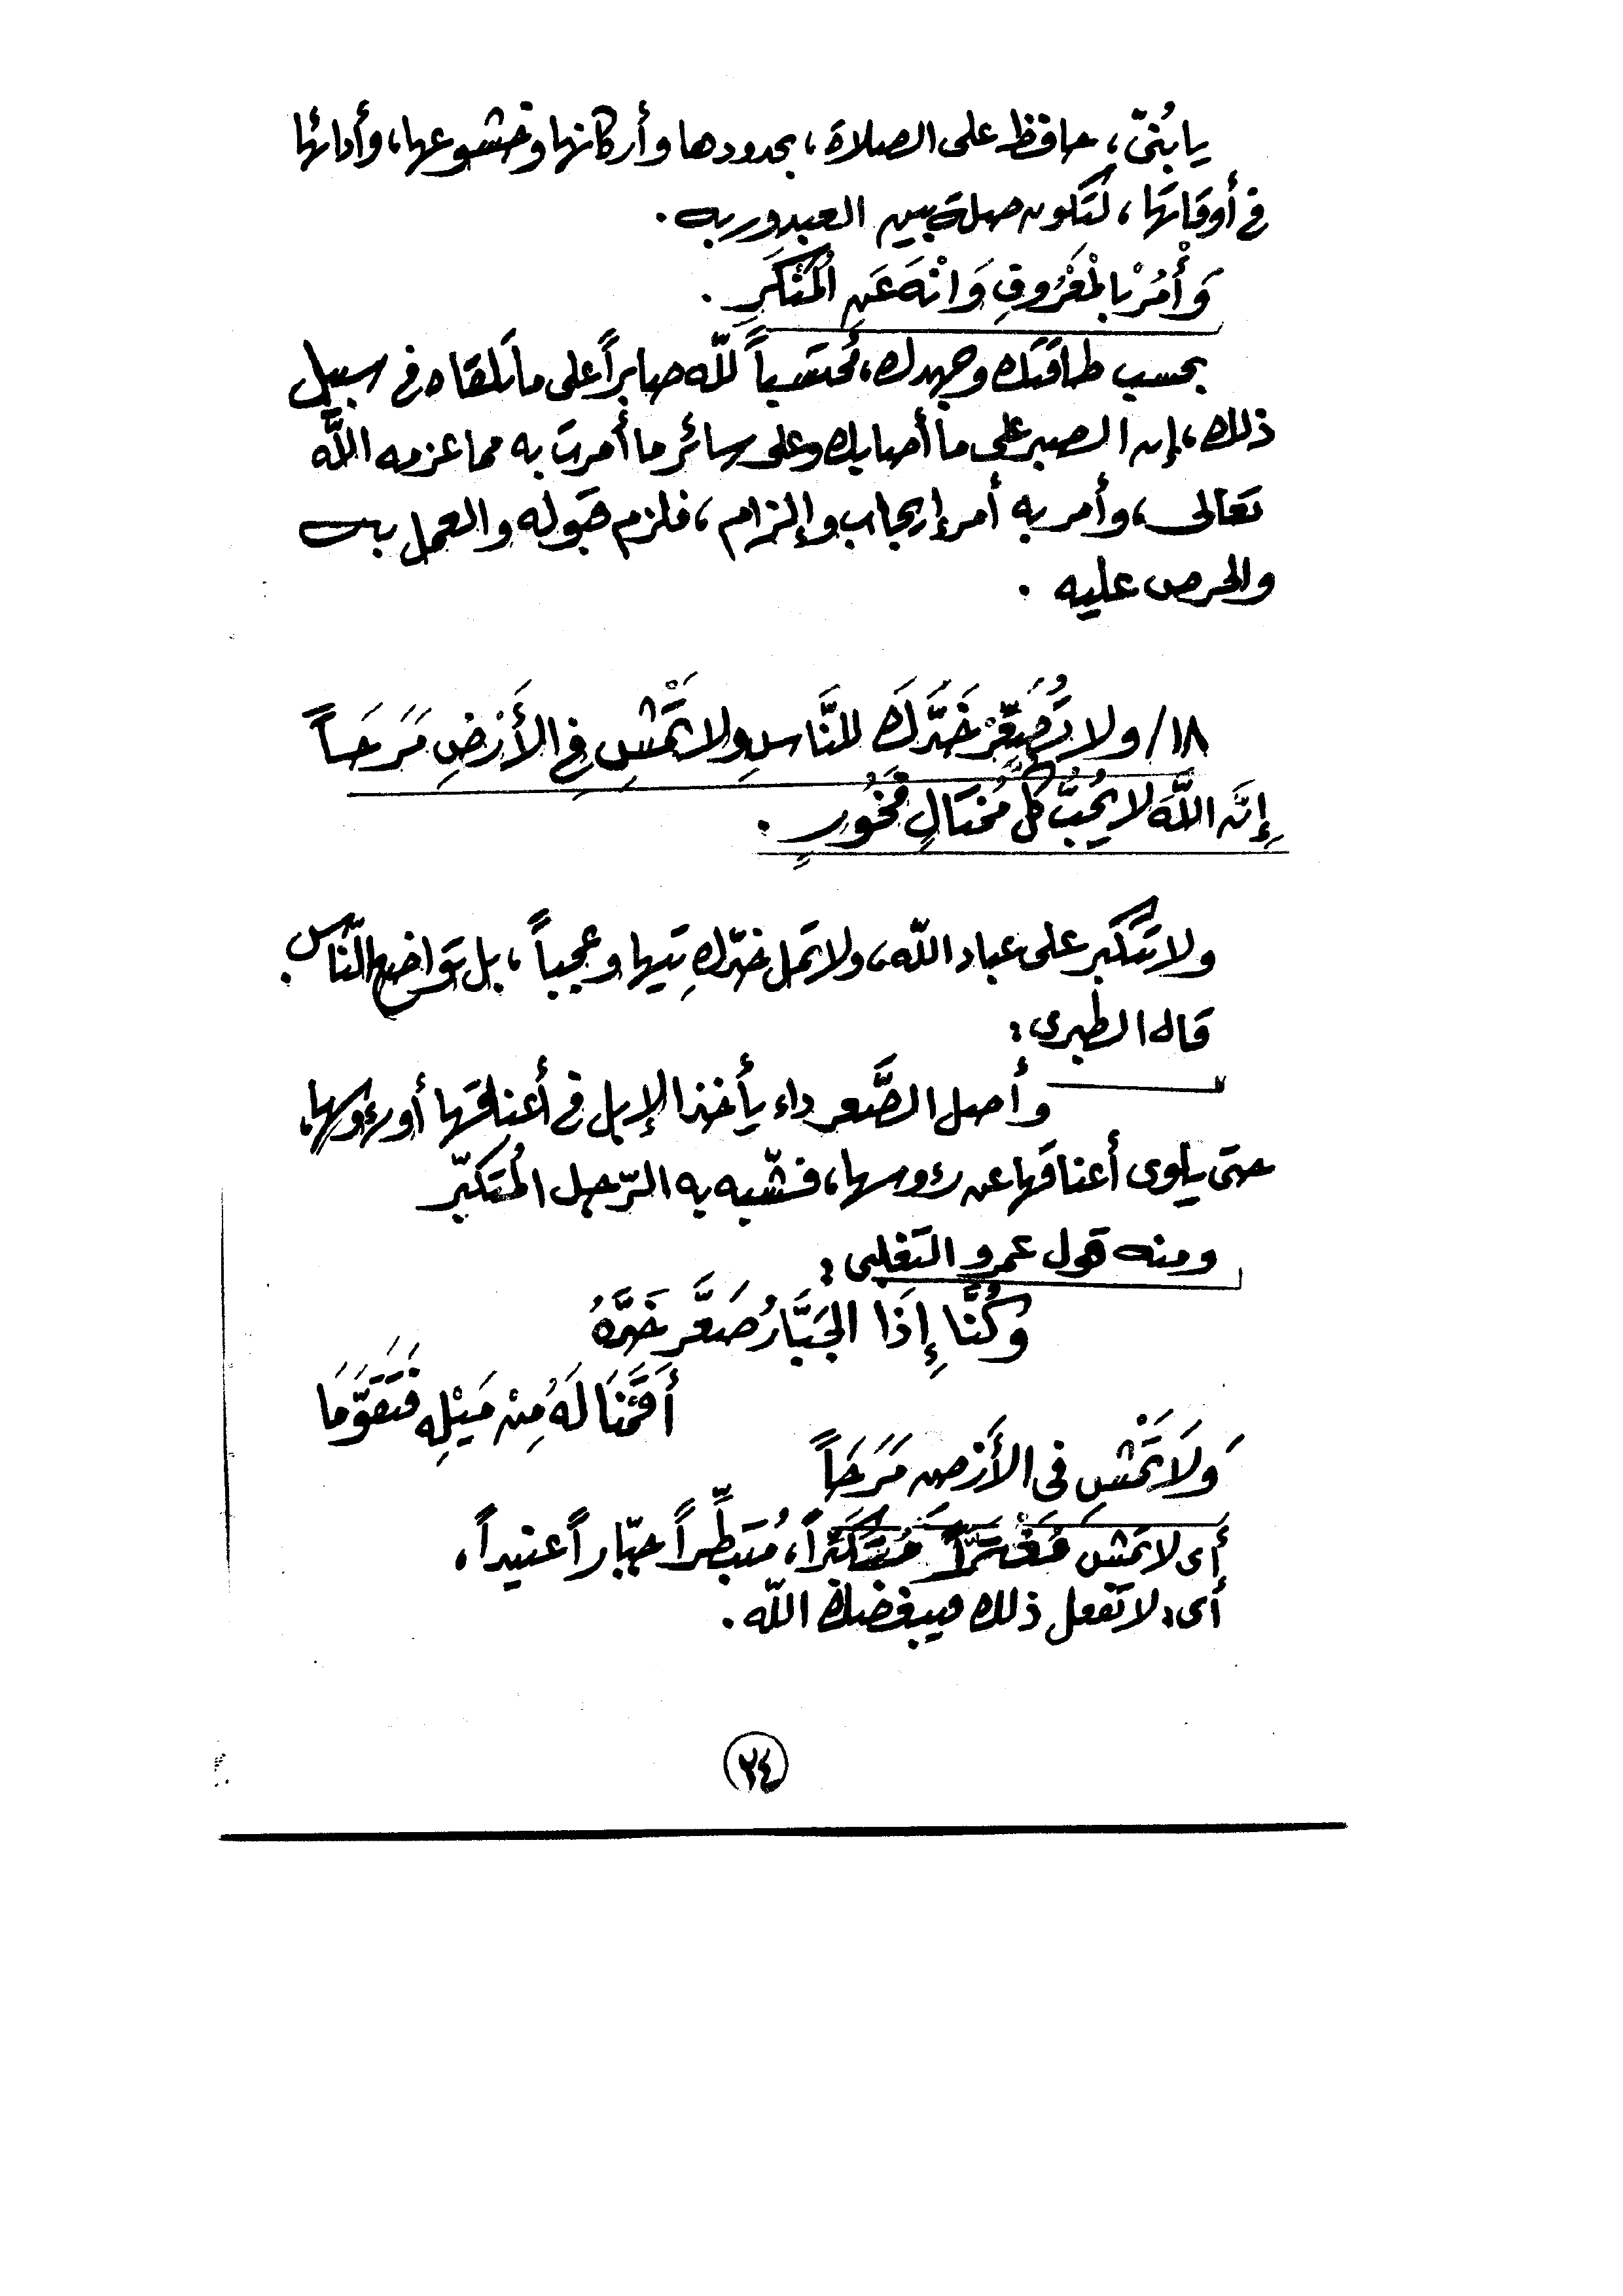 يا بُنيّ، حافظ على الصلاة، بحدودها وأركانها وخشوعها، وأدائها
في أوقاتها، لتكون صلة بين العبد وربه.
وَأْمُرْ بالمَعْرُوفِ وَانْهَ عَنِ المُنْكَرِ.
بحسب طاقتك وجهدك، مُحتَسباً للّه صابراً على ما تلقاه في سبيل
ذلك، إن الصبر على ما أصابك وعلى سائر ما أمرت به مما عزمه اللَّه
تعالى، وأمر به أمر إيجاب وإلزام، فلزم قبوله والعمل به
والحرص عليه.
١٨/ ولا تُصَعِّرْ خَدَّكَ للنَّاسِ ولا تَمْشِ في الأَرْضِ مَرَحَاً
إِنَّ اللَّهَ لا يُحِبُّ كُلَّ مُختَالٍ فَخُورٍ.
ولا تتكبر على عباد اللّه، ولا تمل خدّك تِيها وعجباً، بل تواضع للنّاس.
قال الطبري:
وأصل الصَّعر داء يأخذ الإبل في أعناقها أو رءوسها،
حتى يلوى أعناقها عن رؤوسها، فشبّه به الرّجل المُتكبّر
ومنه قول عمرو التغلبى:
وَكُنَّا إِذَا الجَبَّارُ صَعَّر خَدَّهُ
أَقَمْنَا لَهُ مِنْ مَيْلِهِ فَتَقَوَّمَا
وَلَا تَمْشِ في الأَرْضِ مَرَحَاً
أي لا تمش مُغْتَرّاً مُتَكَبّراً، مُتبَطِّراً جبّاراً عنيداً،
أى: لا تفعل ذلك فيبغضك اللّه.
٢٤